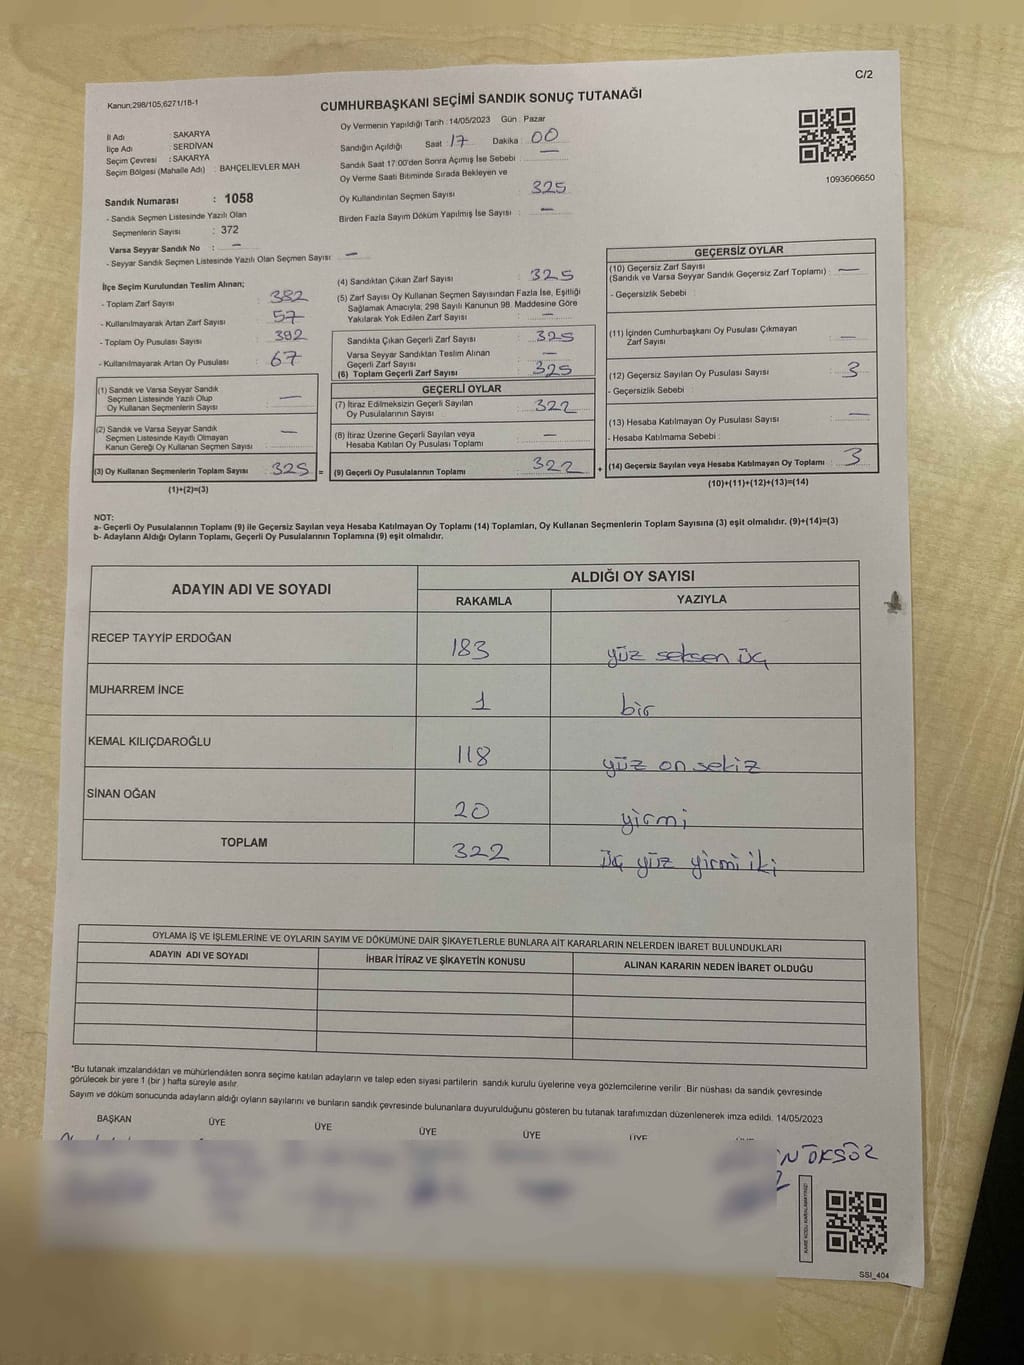 C/2
Kanun;298/105,6271/18-1
CUMHURBAŞKANI SEÇİMİ SANDIK SONUÇ TUTANAĞI
İl Adı : SAKARYA
İlçe Adı : SERDİVAN
Seçim Çevresi : SAKARYA
Seçim Bölgesi (Mahalle Adı) : BAHÇELİEVLER MAH
Sandık Numarası : 1058
- Sandık Seçmen Listesinde Yazılı Olan
Seçmenlerin Sayısı : 372
Varsa Seyyar Sandık No : —
- Seyyar Sandık Seçmen Listesinde Yazılı Olan Seçmen Sayısı: —
Oy Vermenin Yapıldığı Tarih : 14/05/2023 Gün : Pazar
Sandığın Açıldığı Saat : 17 Dakika : 00
Sandık Saat 17:00'den Sonra Açımış İse Sebebi : —
Oy Verme Saati Bitiminde Sırada Bekleyen ve
Oy Kullandırılan Seçmen Sayısı : 325
Birden Fazla Sayım Döküm Yapılmış İse Sayısı : —
1093606650
İlçe Seçim Kurulundan Teslim Alınan;
- Toplam Zarf Sayısı : 382
- Kullanılmayarak Artan Zarf Sayısı : 57
- Toplam Oy Pusulası Sayısı : 392
- Kullanılmayarak Artan Oy Pusulası : 67
(1) Sandık ve Varsa Seyyar Sandık
Seçmen Listesinde Yazılı Olup
Oy Kullanan Seçmenlerin Sayısı : —
(2) Sandık ve Varsa Seyyar Sandık
Seçmen Listesinde Kayıtlı Olmayan
Kanun Gereği Oy Kullanan Seçmen Sayısı : —
(3) Oy Kullanan Seçmenlerin Toplam Sayısı : 325 =
(1)+(2)=(3)
(4) Sandıktan Çıkan Zarf Sayısı : 325
(5) Zarf Sayısı Oy Kullanan Seçmen Sayısından Fazla İse, Eşitliği
Sağlamak Amacıyla; 298 Sayılı Kanunun 98. Maddesine Göre
Yakılarak Yok Edilen Zarf Sayısı : —
Sandıkta Çıkan Geçerli Zarf Sayısı : 325
Varsa Seyyar Sandıktan Teslim Alınan
Geçerli Zarf Sayısı : —
(6) Toplam Geçerli Zarf Sayısı : 325
GEÇERLİ OYLAR
(7) İtiraz Edilmeksizin Geçerli Sayılan
Oy Pusulalarının Sayısı : 322
(8) İtiraz Üzerine Geçerli Sayılan veya
Hesaba Katılan Oy Pusulası Toplamı : —
(9) Geçerli Oy Pusulalarının Toplamı : 322 +
GEÇERSİZ OYLAR
(10) Geçersiz Zarf Sayısı
(Sandık ve Varsa Seyyar Sandık Geçersiz Zarf Toplamı) : —
- Geçersizlik Sebebi :
(11) İçinden Cumhurbaşkanı Oy Pusulası Çıkmayan
Zarf Sayısı : —
(12) Geçersiz Sayılan Oy Pusulası Sayısı : 3
- Geçersizlik Sebebi :
(13) Hesaba Katılmayan Oy Pusulası Sayısı : —
- Hesaba Katılmama Sebebi :
(14) Geçersiz Sayılan veya Hesaba Katılmayan Oy Toplamı : 3
(10)+(11)+(12)+(13)=(14)
NOT:
a- Geçerli Oy Pusulalarının Toplamı (9) ile Geçersiz Sayılan veya Hesaba Katılmayan Oy Toplamı (14) Toplamları, Oy Kullanan Seçmenlerin Toplam Sayısına (3) eşit olmalıdır. (9)+(14)=(3)
b- Adayların Aldığı Oyların Toplamı, Geçerli Oy Pusulalarının Toplamına (9) eşit olmalıdır.
ADAYIN ADI VE SOYADI ALDIĞI OY SAYISI
RAKAMLA YAZIYLA
RECEP TAYYİP ERDOĞAN 183 yüz seksen üç
MUHARREM İNCE 1 bir
KEMAL KILIÇDAROĞLU 118 yüz on sekiz
SİNAN OĞAN 20 yirmi
TOPLAM 322 üç yüz yirmi iki
OYLAMA İŞ VE İŞLEMLERİNE VE OYLARIN SAYIM VE DÖKÜMÜNE DAİR ŞİKAYETLERLE BUNLARA AİT KARARLARIN NELERDEN İBARET BULUNDUKLARI
ADAYIN ADI VE SOYADI İHBAR İTİRAZ VE ŞİKAYETİN KONUSU ALINAN KARARIN NEDEN İBARET OLDUĞU
*Bu tutanak imzalandıktan ve mühürlendikten sonra seçime katılan adayların ve talep eden siyasi partilerin sandık kurulu üyelerine veya gözlemcilerine verilir. Bir nüshası da sandık çevresinde
görülecek bir yere 1 (bir ) hafta süreyle asılır.
Sayım ve döküm sonucunda adayların aldığı oyların sayılarını ve bunların sandık çevresinde bulunanlara duyurulduğunu gösteren bu tutanak tarafımızdan düzenlenerek imza edildi. 14/05/2023
BAŞKAN ÜYE ÜYE ÜYE ÜYE ÜYE
ÖKSÖZ
SSI_404